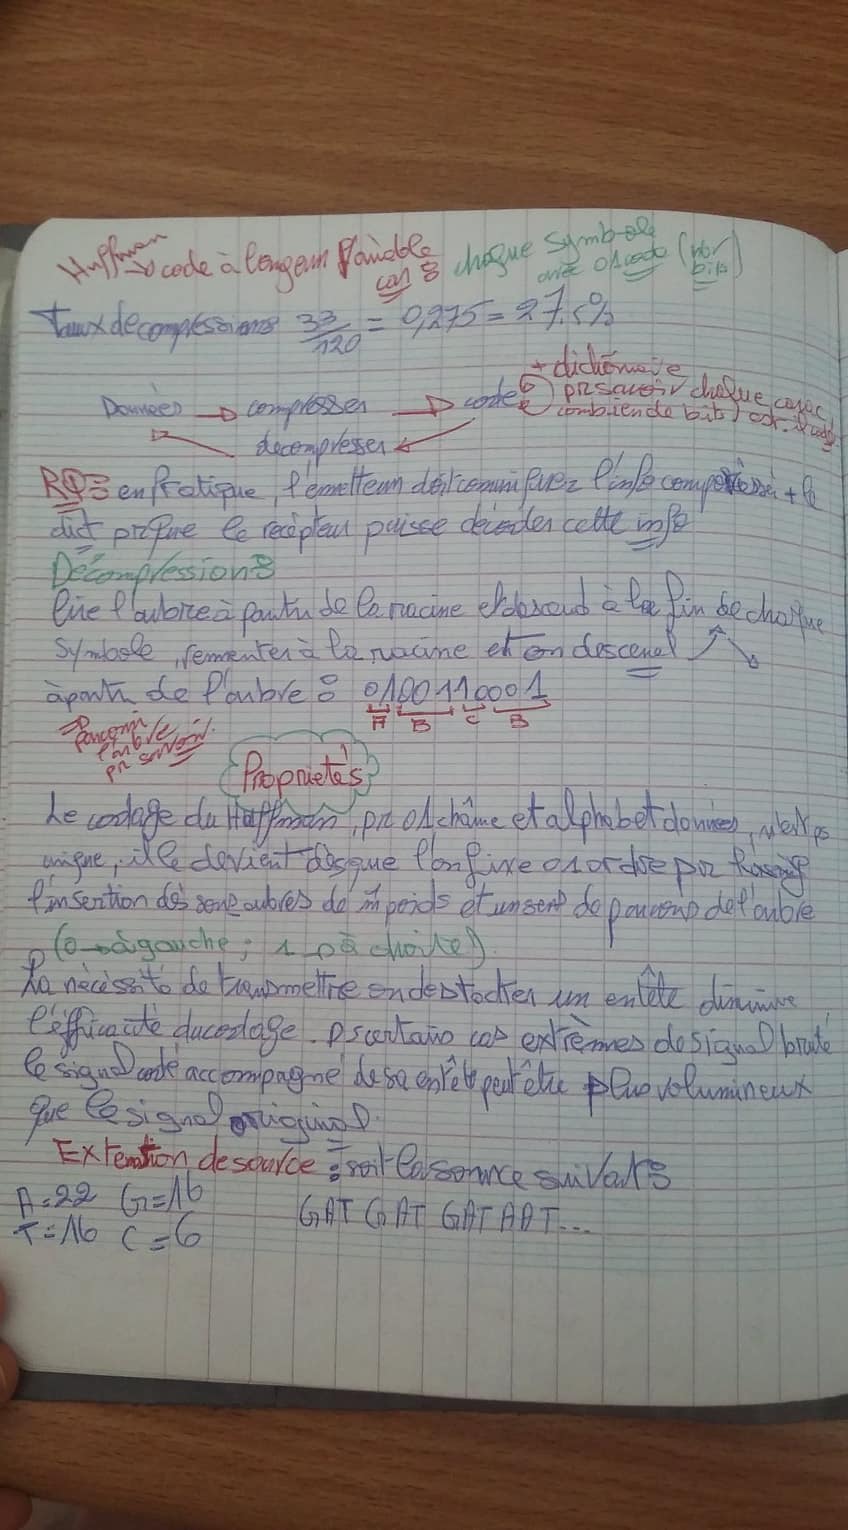 Huffman → code à longeur Variable car : chaque symbole avec 01 code (nbr bits)
Taux de compressions 33/120 = 0,275 = 27.5%
+ dictionnaire
Données → compresser → code pr savoir chaque carac
combien de bits
decompresser
RQ: en Pratique, l'emetteur doit communiquez l'info compressé + le
dict pr que le recépteur puisse decoder cette info
Décompression:
lire l'aubre à partir de la racine et descend à la fin de chaque
symbole, rementer à la racine et on descend
à partir de l'aubre : 0100110001
A B C B
⇒ Parcourir l'aubre pr savoir.
Propriétés
Le codage du Huffman, pr 01 chaîne et alphabet données, n'est ps
unique, il le devient dès que l'on fixe 01 ordre pr
l'insertion des sous aubres de m̂ poids et un sens de parcours de l'aubre
(0 → à gauche ; 1 → à droite).
La nécéssité de transmettre ou de stocker un entête diminue
l'éfficacité du codage. Ds certains cas extrêmes de signal bruité
le signal codé accompagné de sa entête peut être plus volumineux
que le signal original.
Extention de source : soit la source suivante
A=22 G=16
T=16 C=6 GAT GAT GAT AAT...